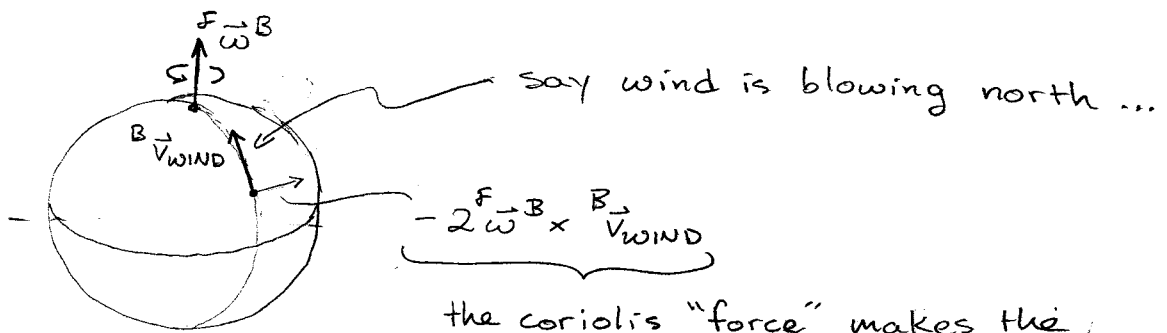 F ω⃗ B
say wind is blowing north ...
B V⃗ WIND
-2 F ω⃗ B × B V⃗ WIND
the coriolis "force" makes the